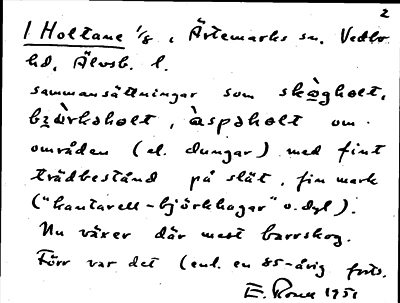 2
1 Holtane 1/8, Ärtemarks sn. Vedbo
hd, Älvsb. l.
sammansättningar som skògholt,
bzòrkaholt, àspaholt om
områden (el. dungar) med fint
trädbestånd på slät, fin mark
("kantarell-björkhagar" o.dyl).
Nu växer där mest barrskog.
Förr var det (enl. en 85-årig
E. 1951